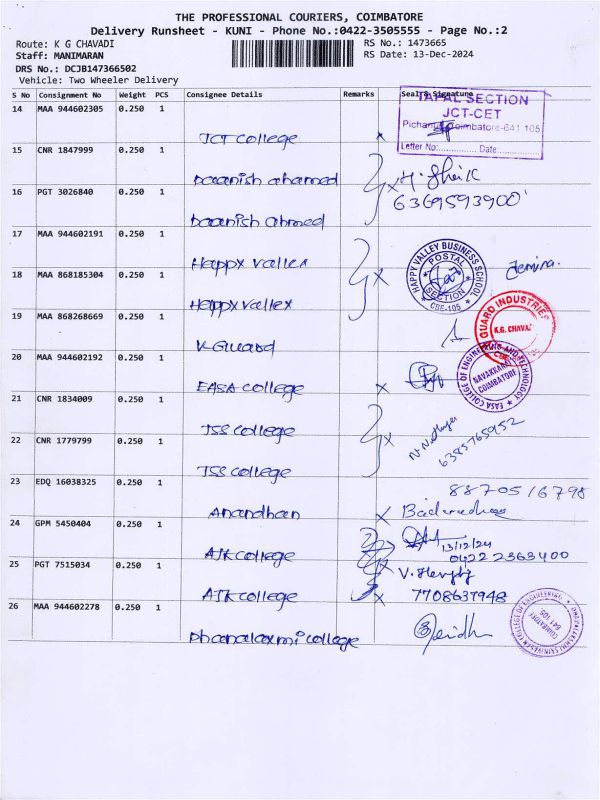 THE PROFESSIONAL COURIERS, COIMBATORE
Delivery Runsheet - KUNI - Phone No.:0422-3505555 - Page No.:2
Route: K G CHAVADI
RS No.: 1473665
Staff: MANIMARAN
RS Date: 13-Dec-2024
DRS No.: DCJB147366502
Vehicle: Two Wheeler Delivery
S No Consignment No Weight PCS Consignee Details Remarks Seal & Signature
14 MAA 944602305 0.250 1
TAPAL SECTION
JCT-CET
Pichanur, Coimbatore-641 105
Letter No:.............. Date:..............
JCT college
15 CNR 1847999 0.250 1
Daanish ahamed
16 PGT 3026840 0.250 1
6369593900
Daanish Ahmed
17 MAA 944602191 0.250 1
Happy valley
HAPPY VALLEY BUSINESS SCHOOL
POSTAL
SECTION
CBE-105
Jemina.
18 MAA 868185304 0.250 1
Happy valley
19 MAA 868268669 0.250 1
GUARD INDUSTRIES
K.G. CHAVA
V-Guard
20 MAA 944602192 0.250 1
EASA college
EASA COLLEGE OF ENGINEERING AND TECHNOLOGY
NAVAKKARAI
COIMBATORE
21 CNR 1834009 0.250 1
JSS college
6385765952
22 CNR 1779799 0.250 1
JSS college
23 EDQ 16038325 0.250 1
8870516798
Anandhan
24 GPM 5450404 0.250 1
13/12/24
AJK college
04222363400
25 PGT 7515034 0.250 1
AJK college
7708637948
26 MAA 944602278 0.250 1
Dhanalaxmi college
COIMBATORE
641 105